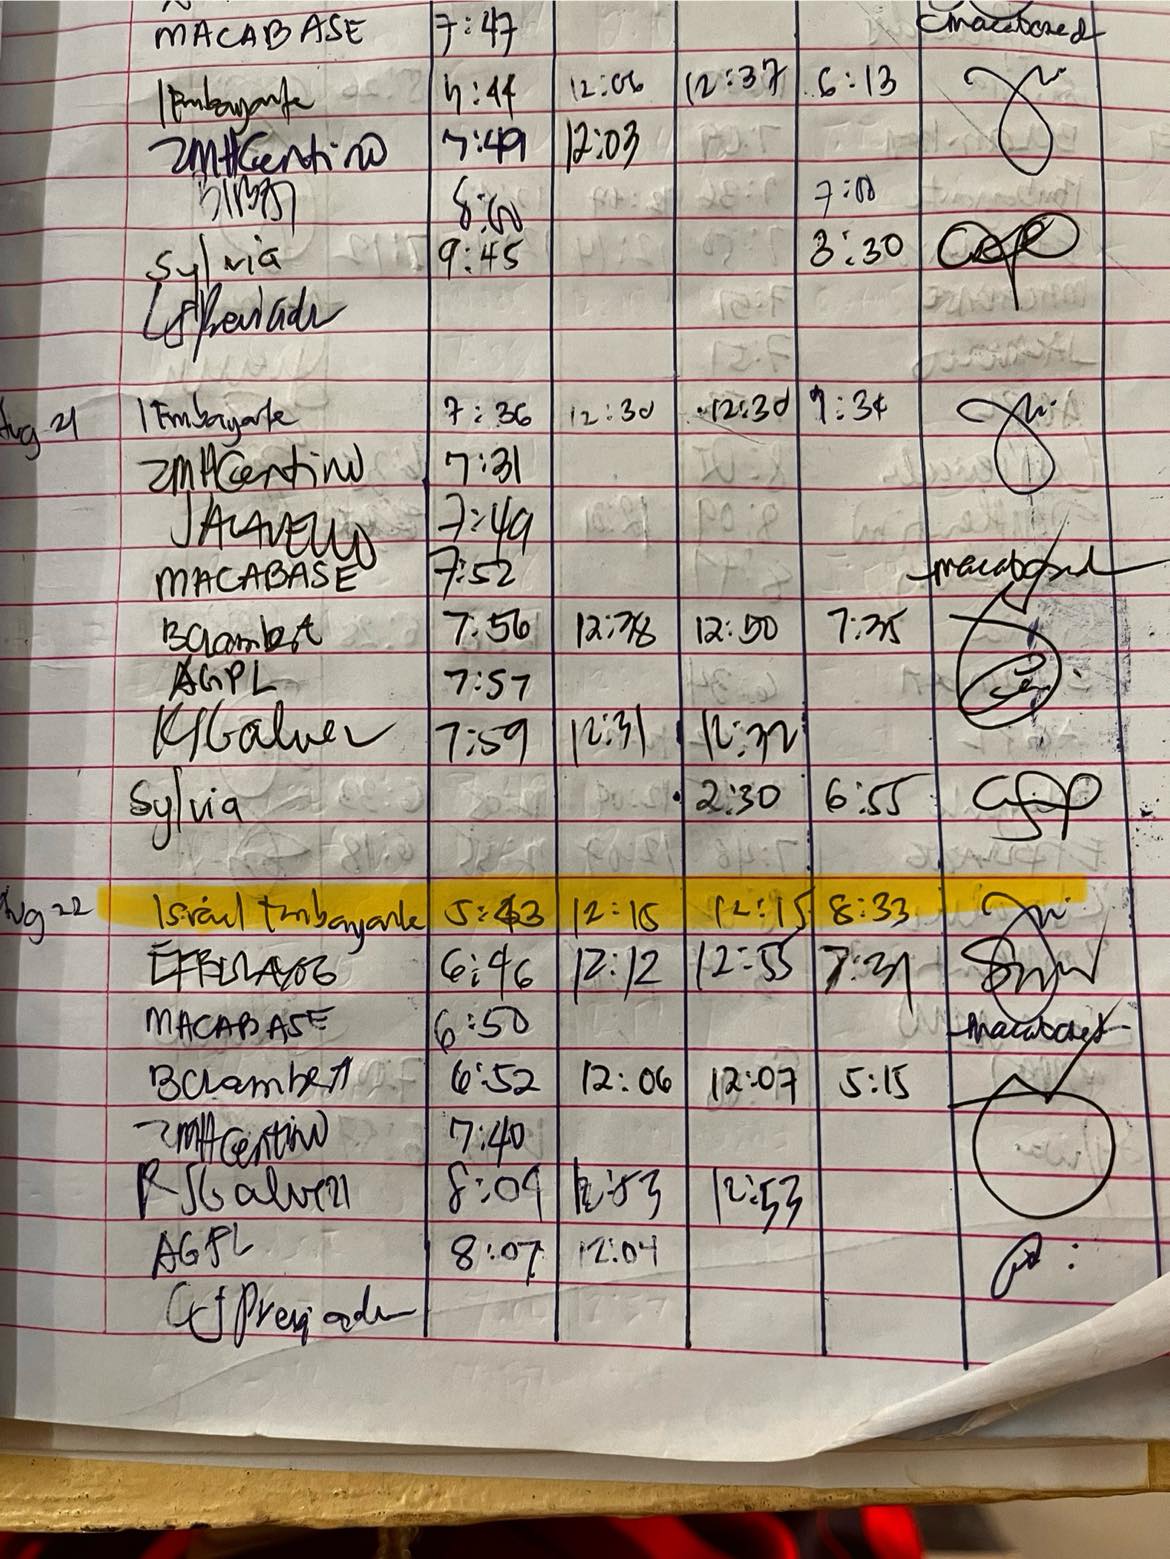 MACABASE 7:47 macabased
IEmbayarte 7:44 12:06 12:37 6:13
ZMHCentino 7:49 12:03
8:00 7:00
Sylvia 9:45 3:30
Aug 21 IEmbayarte 7:36 12:30 12:30 7:34
ZMHCentino 7:31
JALAVELLO 7:49
MACABASE 7:52 macabased
BCLambert 7:56 12:38 12:50 7:35
AGPL 7:57
KJGalvez 7:59 12:31 12:32
Sylvia 2:30 6:55
Aug 22 Israel Embayarte 5:43 12:15 12:15 8:33
6:46 12:12 12:55 7:31
MACABASE 6:50 macabased
BCLambert 6:52 12:06 12:07 5:15
ZMHCentino 7:40
8:09 12:53 12:53
AGPL 8:07 12:04